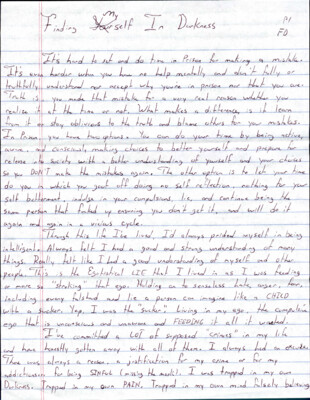 my
Finding Yourself In Darkness
It's hard to sit and do time in Prison for making a mistake.
It's even harder when you have no help mentally and don't fully or
truthfully understand nor accept why you're in prison nor that you are.
Truth is, you made that mistake for a very real reason whether you
realize it at the time or not. What makes the difference is if learn
from it or stay oblivious to the truth and blame others for your mistakes.
In Prison, you have two options. You can do your time by being active,
aware, and consciously making choices to better yourself and prepare for
release into society with a better understanding of yourself and your choices
so you DON'T make the mistakes again. The other option is to let your time
do you in which you goof off doing no self reflection, nothing for your
self betterment, indulge in your compulsions, lie, and continue being the
same person that fucked up ensuring you don't get it, and will do it
again and again in a vicious cycle.
Through this life I've lived, I'd always prided myself in being
intelligent. Always felt I had a good and strong understanding of many
things. Really felt like I had a good understanding of myself and other
people. This is the Egotistical LIE that I lived in as I was feeding
or more so "stroking" that ego. Holding on to senseless hate, anger, fear,
including every falsehood and lie a person can imagine like a CHILD
with a sucker. Yep, I was the "sucker" living in my ego, the compulsive
ego that is unconscious and unaware and FEEDING it all it wanted.
I've committed a LOT of supposed "crimes" in my life
and have honestly gotten away with all of them. I always had an excuse.
There was always a reason, a justification for my crime or for my
addictiveness for being SINful (missing the mark). I was trapped in my own
Darkness. Trapped in my own PAIN. Trapped in my own mind falsely believing